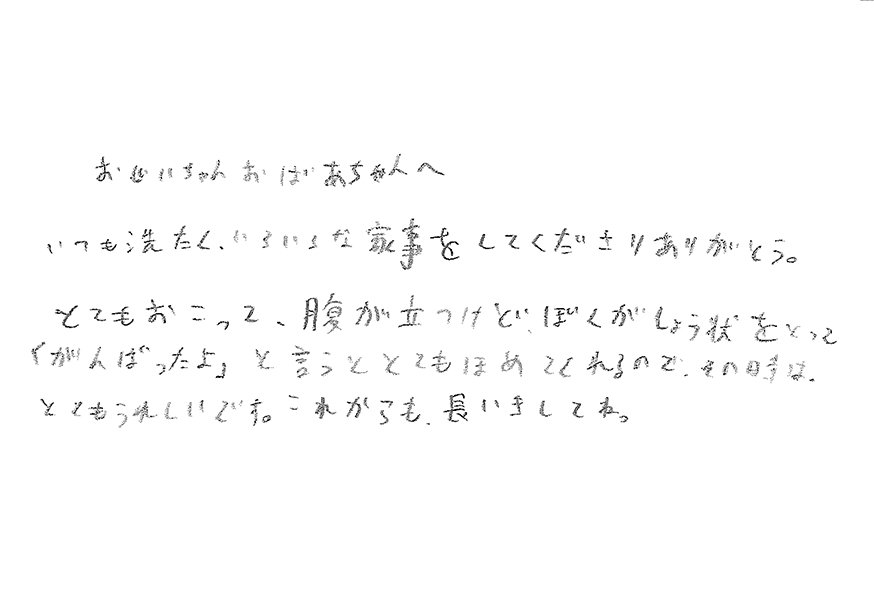 おじいちゃんおばあちゃんへ
いつも洗たく、いろいろな家事をしてくださりありがとう。
とてもおこって、腹が立つけど、ぼくがしょう状をとって
「がんばったよ」と言うととてもほめてくれるので、その時は、
とてもうれしいです。これからも、長いきしてね。